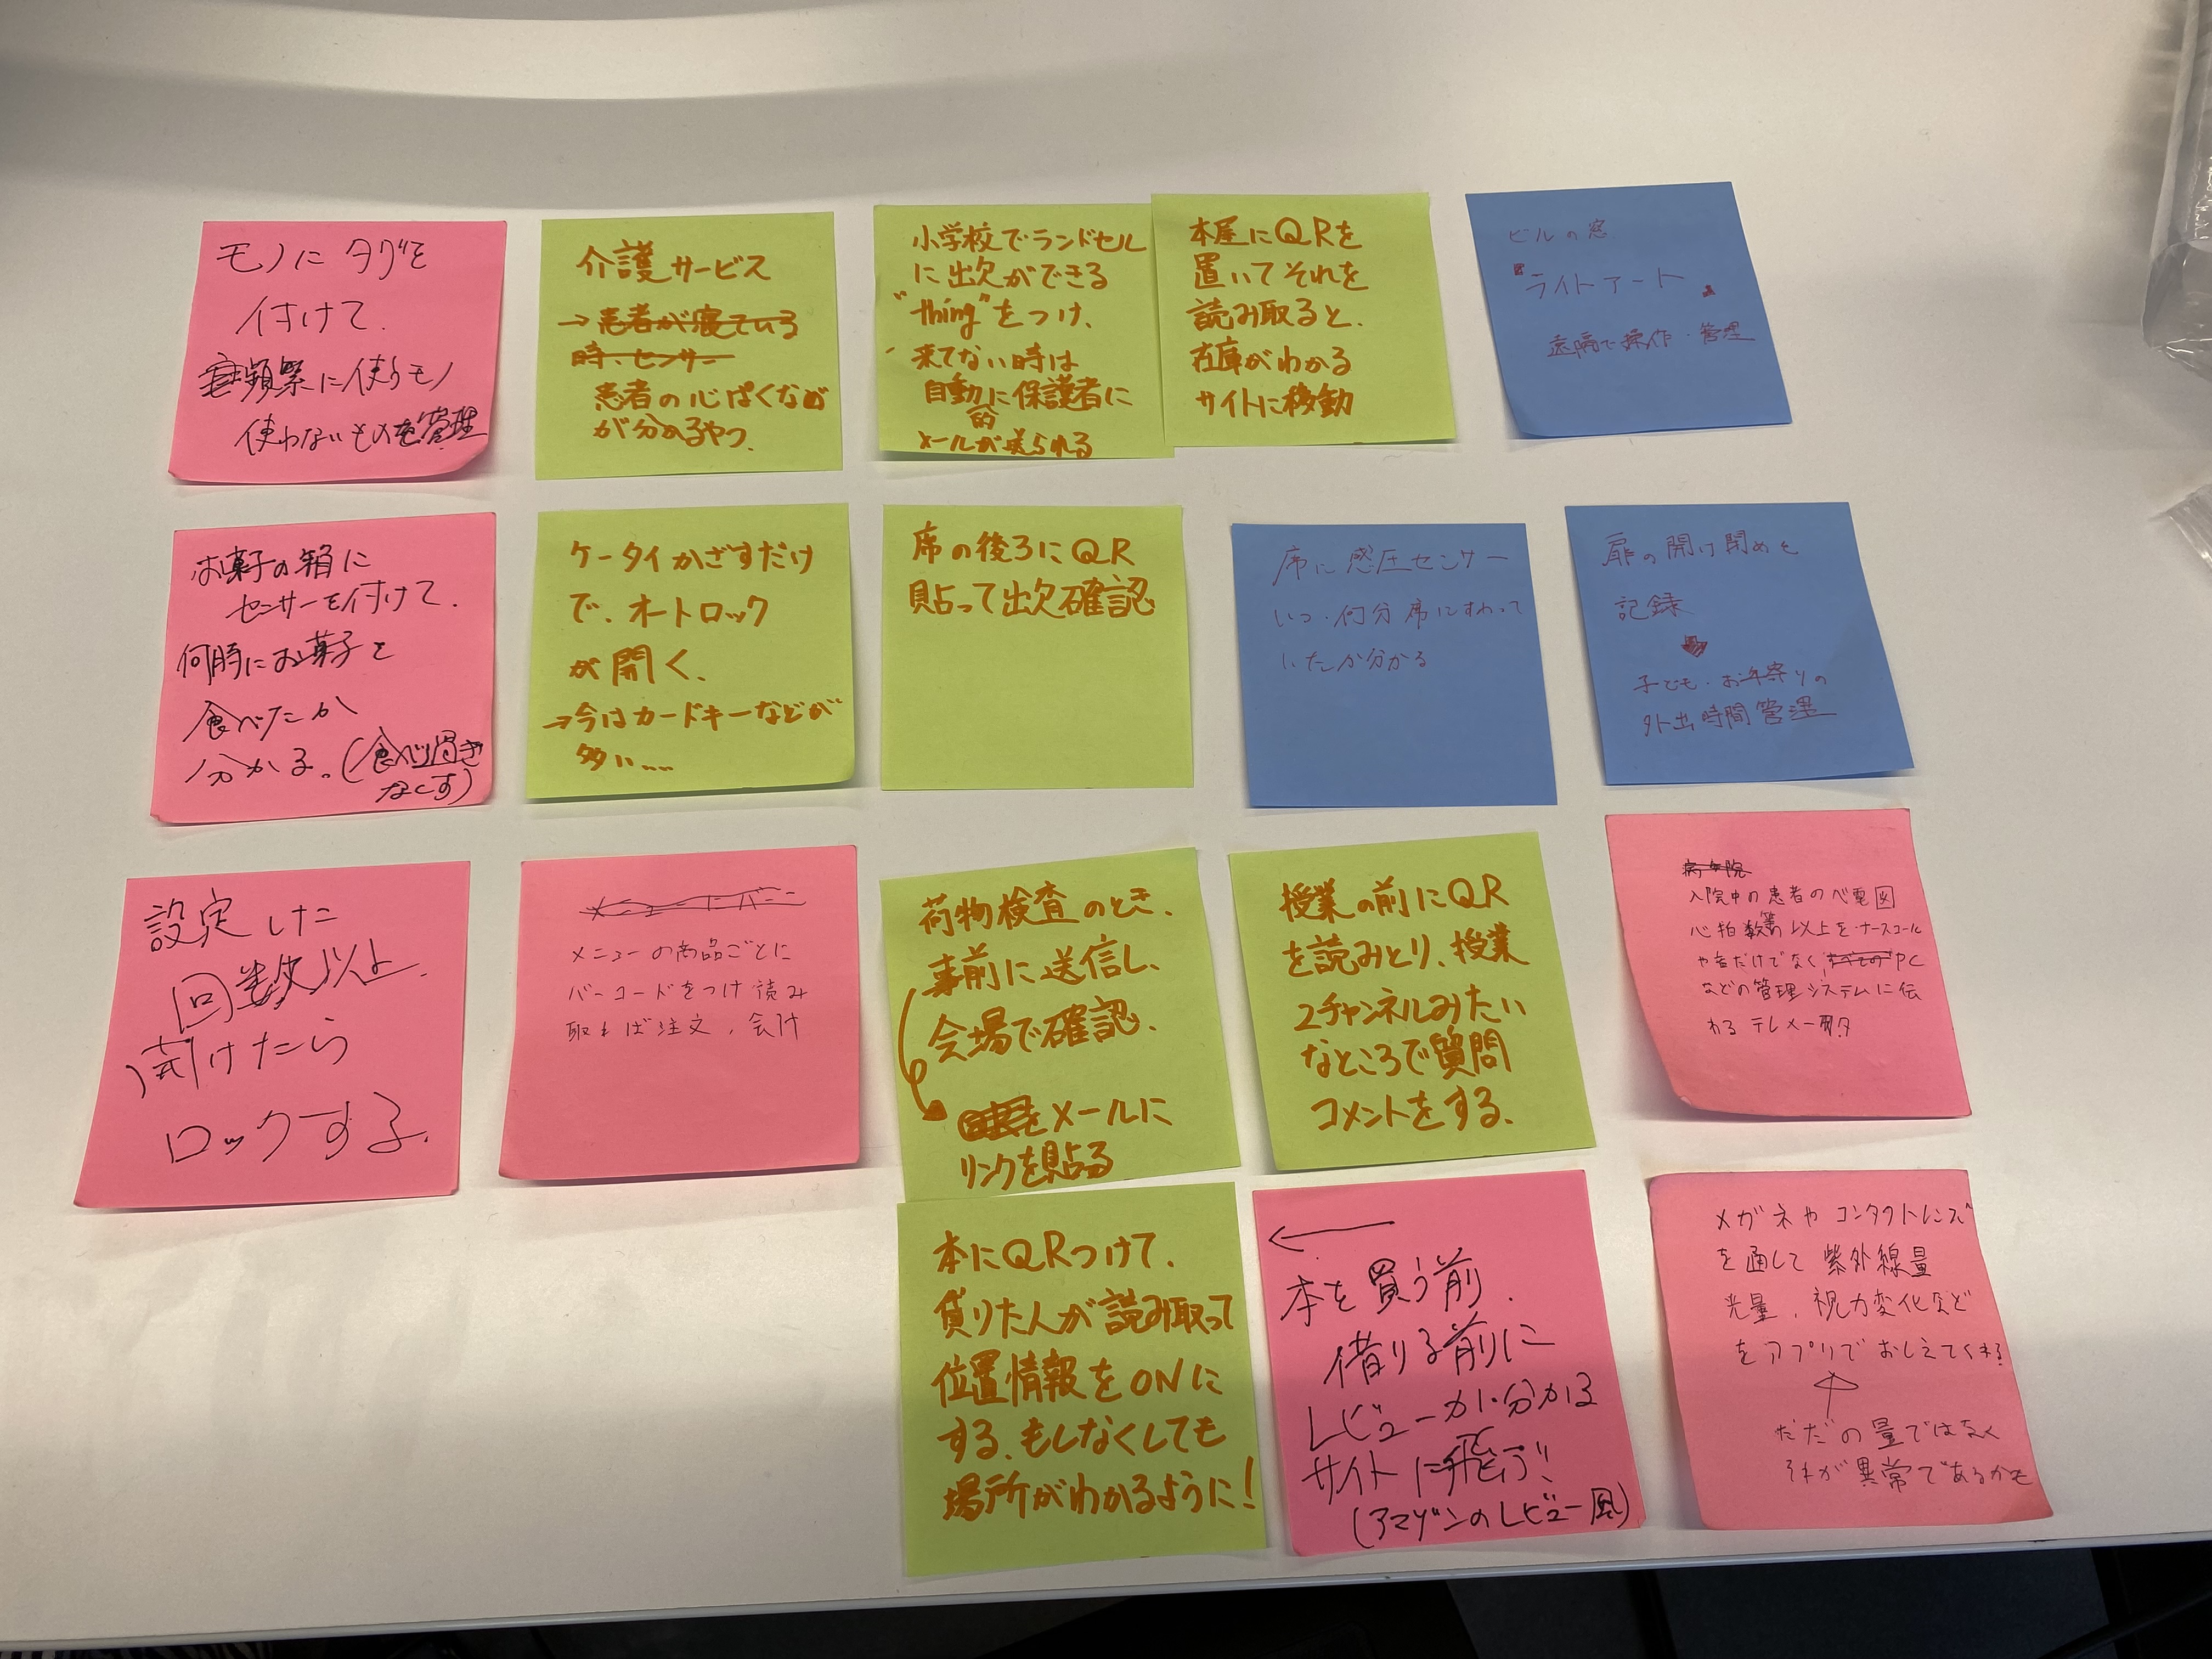 モノにタグを
付けて.
頻繁に使うモノ
使わないものを管理
介護サービス
→患者が寝ている
時、センサー
患者の心ぱくなど
が分かるやつ.
小学校でランドセル
に出欠ができる
"thing"をつけ、
来てない時は
自動的に保護者に
メールが送られる
本屋にQRを
置いてそれを
読み取ると、
在庫がわかる
サイトに移動
ビルの窓
ライトアート
遠隔で操作・管理
お菓子の箱に
センサーを付けて.
何時にお菓子を
食べたか
分かる.(食べ過ぎ
なくす)
ケータイかざすだけ
で、オートロック
が開く、
→今はカードキーなどが
多い....
席の後ろにQR
貼って出欠確認
席に感圧センサー
いつ・何分席にすわって
いたか分かる
扉の開け閉めを
記録
子ども・お年寄りの
外出時間管理
設定した
回数以上.
開けたら
ロックする.
メニューにバー
メニューの商品ごとに
バーコードをつけ読み
取れば注文、会計
荷物検査のとき、
事前に送信し、
会場で確認、
メールに
リンクを貼る
授業の前にQR
を読みとり、授業
2チャンネルみたい
なところで質問
コメントをする.
病院
入院中の患者の心電図
心拍数等 以上を・ナースコール
や音だけでなく、すべての PC
などの管理システムに伝
わる テレメータ
本にQRつけて、
貸りた人が読み取って
位置情報をONに
する.もしなくしても
場所がわかるように!
本を買う前.
借りる前に
レビューが分かる
サイトに飛ぶ!
(アマゾンのレビュー風)
メガネやコンタクトレンズ
を通して紫外線量
光量、視力変化など
をアプリでおしえてくれる
ただの量ではなく
それが異常であるかも